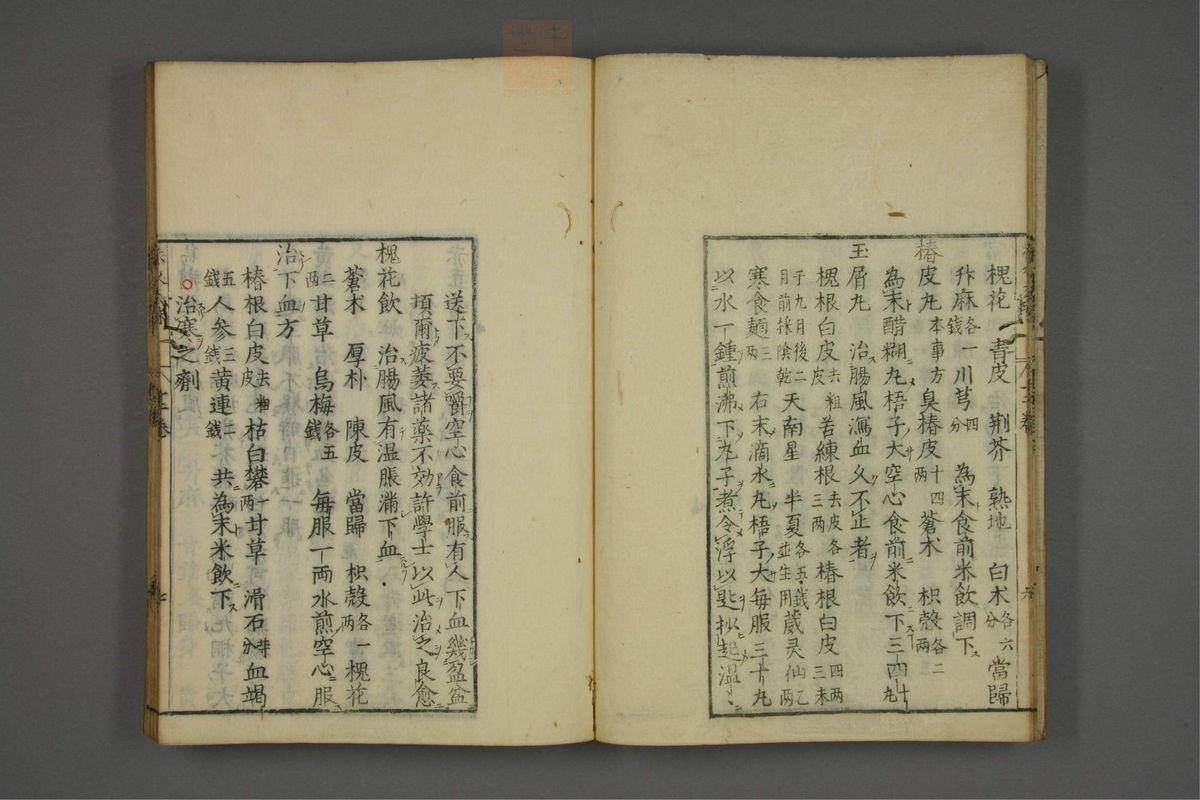 槐花 青皮 荆芥 熟地 白朮各六分 當歸
升麻各一錢 川芎四分 為末食前米飲調下
椿皮丸本事方 臭椿皮十四兩 蒼朮 枳殼各二兩
為末醋糊丸梧子大空心食前米飲下三四十丸
玉屑丸 治腸風瀉血久不止者
槐根白皮去粗皮 苦練根去皮各三兩 椿根白皮四兩三末
于九月後二月前採陰乾 天南星 半夏各五錢並生用 葳灵仙乙兩
寒食麵三兩 右末滴水丸梧子大每服三十丸
以水一鍾煎沸下丸子煮令浮以匙抄起温
送下不要嚼空心食前服有人下血幾盈盆
頃爾疲萎諸藥不効許學士以此治之良愈
槐花飲 治腸風有温脹滿下血
蒼木 厚朴 陳皮 當歸 枳殼各一兩 槐花
二兩 甘草 烏梅各五錢 每服一兩水煎空心服
治下血方
椿根白皮去粗皮 枯白礬一兩 甘草 滑石 血竭
五錢 人參三錢 黄連二錢 共為末米飲下
治寒之劑